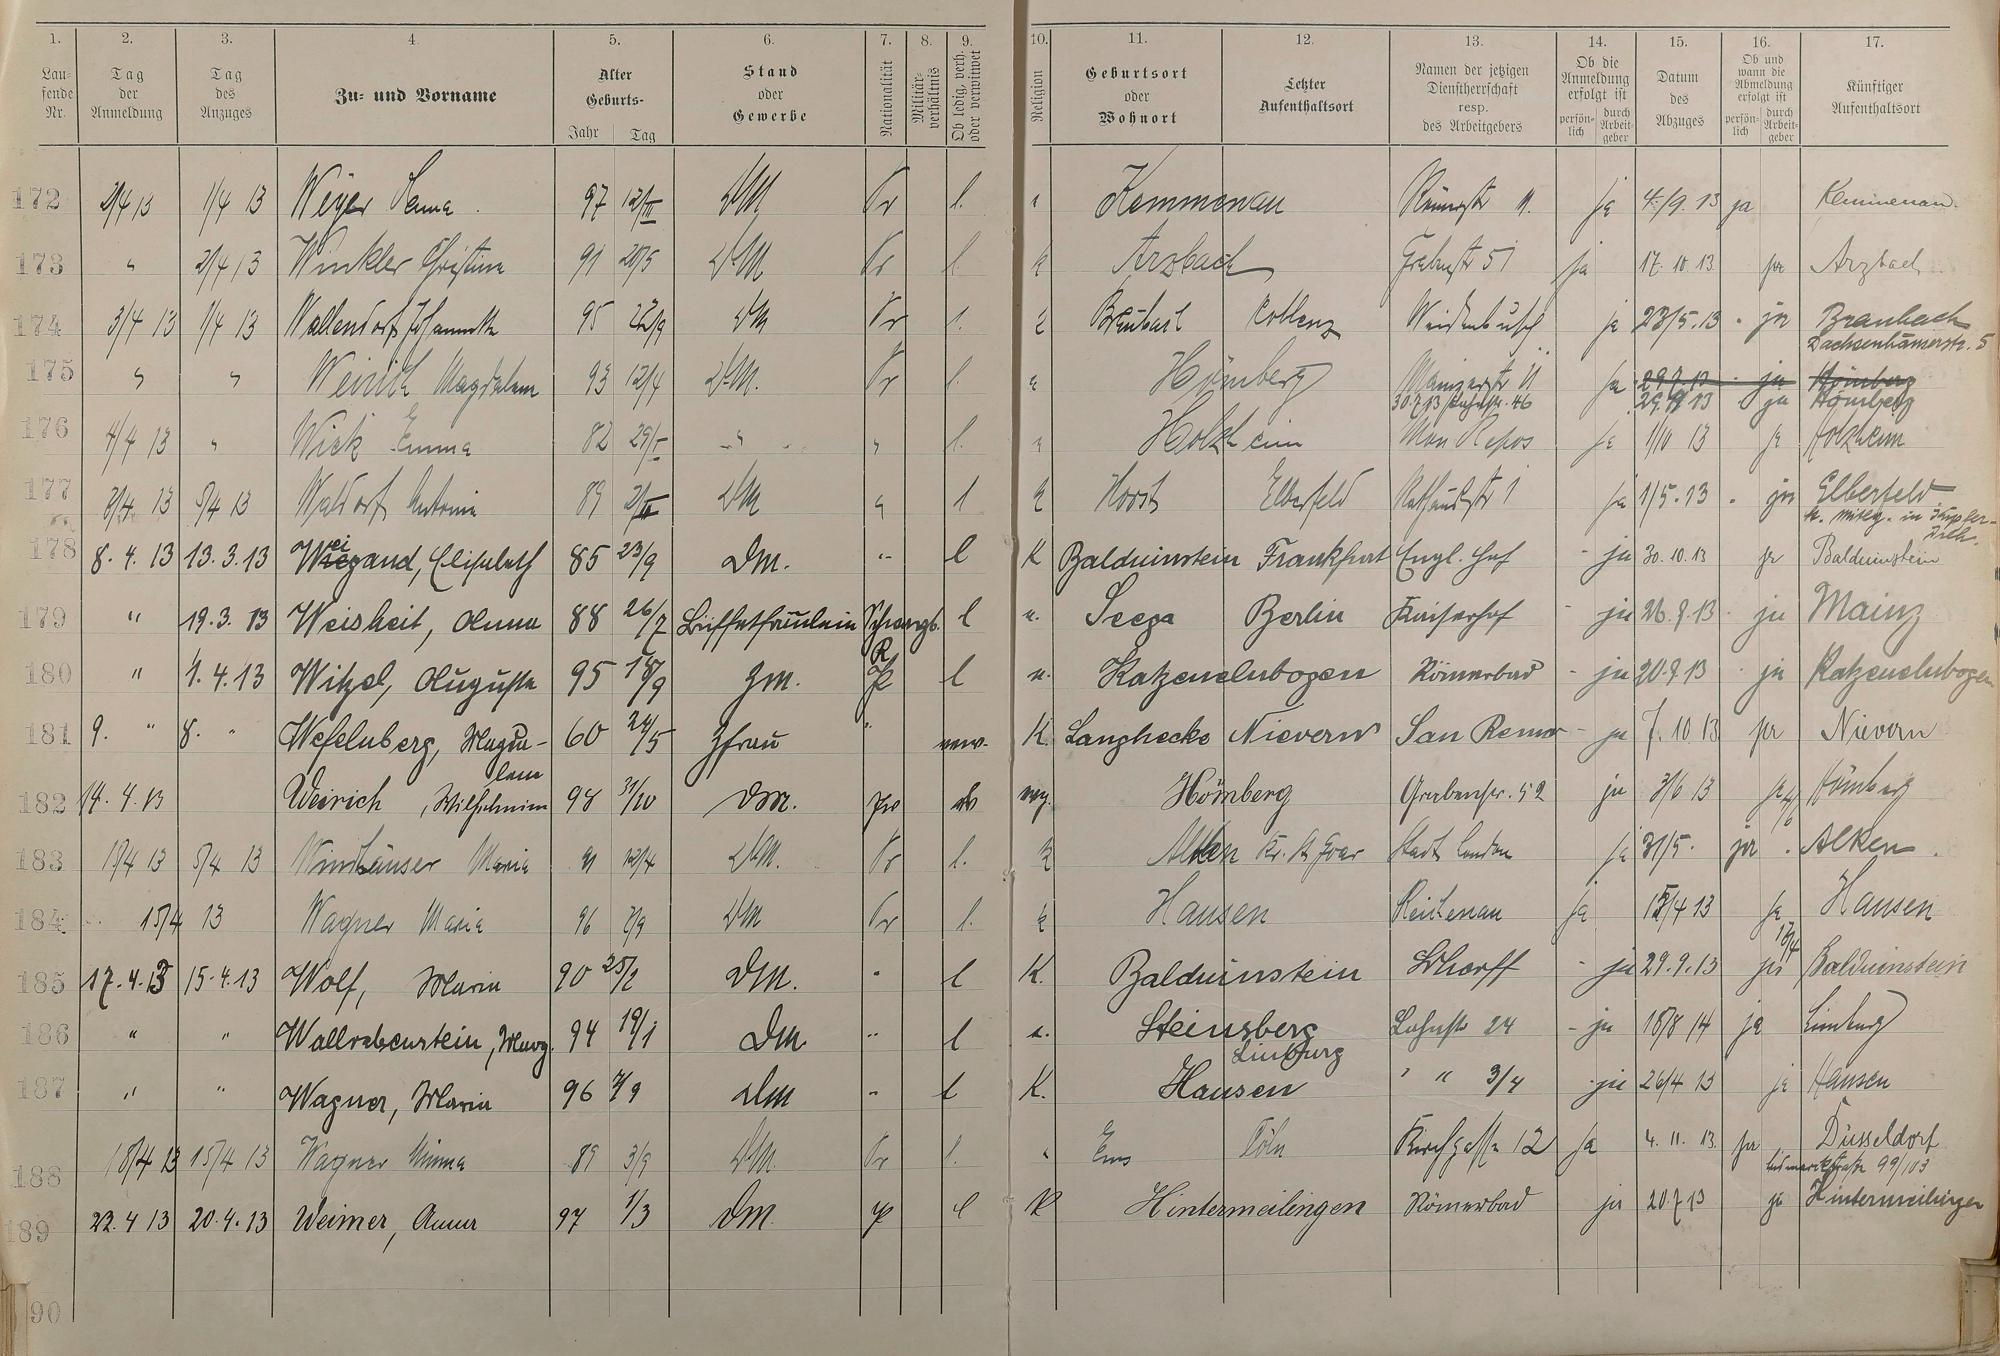 1. 2. 3. 4. 5. 6. 7. 8. 9. 10. 11. 12. 13. 14. 15. 16. 17.
Laufende Nr. Tag der Anmeldung Tag des Anzuges Zu- und Vorname Alter Geburts- Jahr Tag Stand oder Gewerbe Nationalität Militärverhältnis Ob ledig, verh. oder verwitwet Religion Geburtsort oder Wohnort Letzter Aufenthaltsort Namen der jetzigen Dienstherrschaft resp. des Arbeitgebers Ob die Anmeldung erfolgt ist persönlich durch Arbeitgeber Datum des Abzuges Ob und wann die Abmeldung erfolgt ist persönlich durch Arbeitgeber Künftiger Aufenthaltsort
172 2/4 13 1/4 13 Weyer 97 12/III DM Pr l. Kemmenau Römerstr 11. ja 4./9. 13 ja Kemmenau
173 " 2/4 13 Winkler Christine 91 DM Pr l. k Arzbach Grabenstr 51 ja 17. 10. 13 ja Arzbach
174 3/4 13 1/4 13 Wallendorf 95 22/9 DM Pr l. Braubach Koblenz Weidenbusch ja 23/5. 13 ja Braubach
Dachsenhäuserstr. 5
175 " " Weirich Magdalena 93 12/4 DM. Pr l. Hömberg Mainzerstr 11 ja 29.7.13 ja Hömberg
30.7.13 46 13 ja Hömberg
176 4/4 13 " Wick Emma 82 " " l. Holzheim Mon Repos ja 13 ja Holzheim
177 13 5/4 13 Waldorf Antonie 89 DM " l k Horst Elberfeld Rathausstr 1 ja 1/5. 13 ja Elberfeld
178 8. 4. 13 13. 3. 13 Weigand, Elisabeth 85 23/9 DM. " l K Balduinstein Frankfurt Engl. Hof - ja 30. 10. 13 ja Balduinstein
179 " 19. 3. 13 Weisheit, Anna 88 26/7 Büffetfräulein l Seega Berlin Kaiserhof - ja ja Mainz
180 " 1. 4. 13 Witzel, Auguste 95 Zm. P l Katzenelnbogen Römerbad - ja ja Katzenelnbogen
181 9. " 8. " Wefelnberg, Magda-
lena 60 24/5 Zfrau " verw. K. Langhecke Nievern San Remo - ja 7. 10 13 ja Nievern
182 14. 4. 13 Weirich, Wilhelmine 98 31/10 DM. Pr Hömberg Grabenstr. 52 ja 3/6 13 ja Hömberg
183 13 5/4 13 Windhäuser Maria 91 12/4 DM. Pr l. k Alken Kr. St Goar Stadt London ja 31/5. ja Alken
184 15/4 13 Wagner Maria 96 7/9 DM Pr l. k Hausen Reichenau ja 13 ja Hausen
185 17. 4. 13 15. 4. 13 Wolf, Maria 90 25/2 DM. " l K. Balduinstein Scharff - ja 29. 9. 13 ja Balduinstein
186 " " Wallrabenstein, Marg. 94 19/1 DM " l Steinsberg Lahnstr 24 - ja 18/8 14 ja Limburg
Limburg
187 " " Wagner, Maria 96 7/9 DM " l K. Hausen " " 3/4 ja 26/4 13 ja Hausen
188 18/4 13 15/4 13 Wagner Minna 89 3/9 DM Pr l. Ems Cöln Kirchgasse 12 ja 4. 11. 13 ja Düsseldorf
99/103
189 22. 4 13 20. 4. 13 Weimer, Anna 97 1/3 DM. P l K Hintermeilingen Römerbad ja 20.7 13 ja Hintermeilingen
90